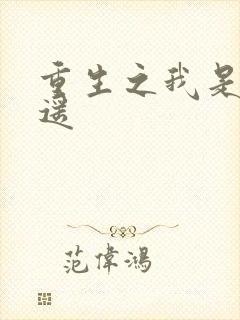 重生之我是
遥
范偉鴻